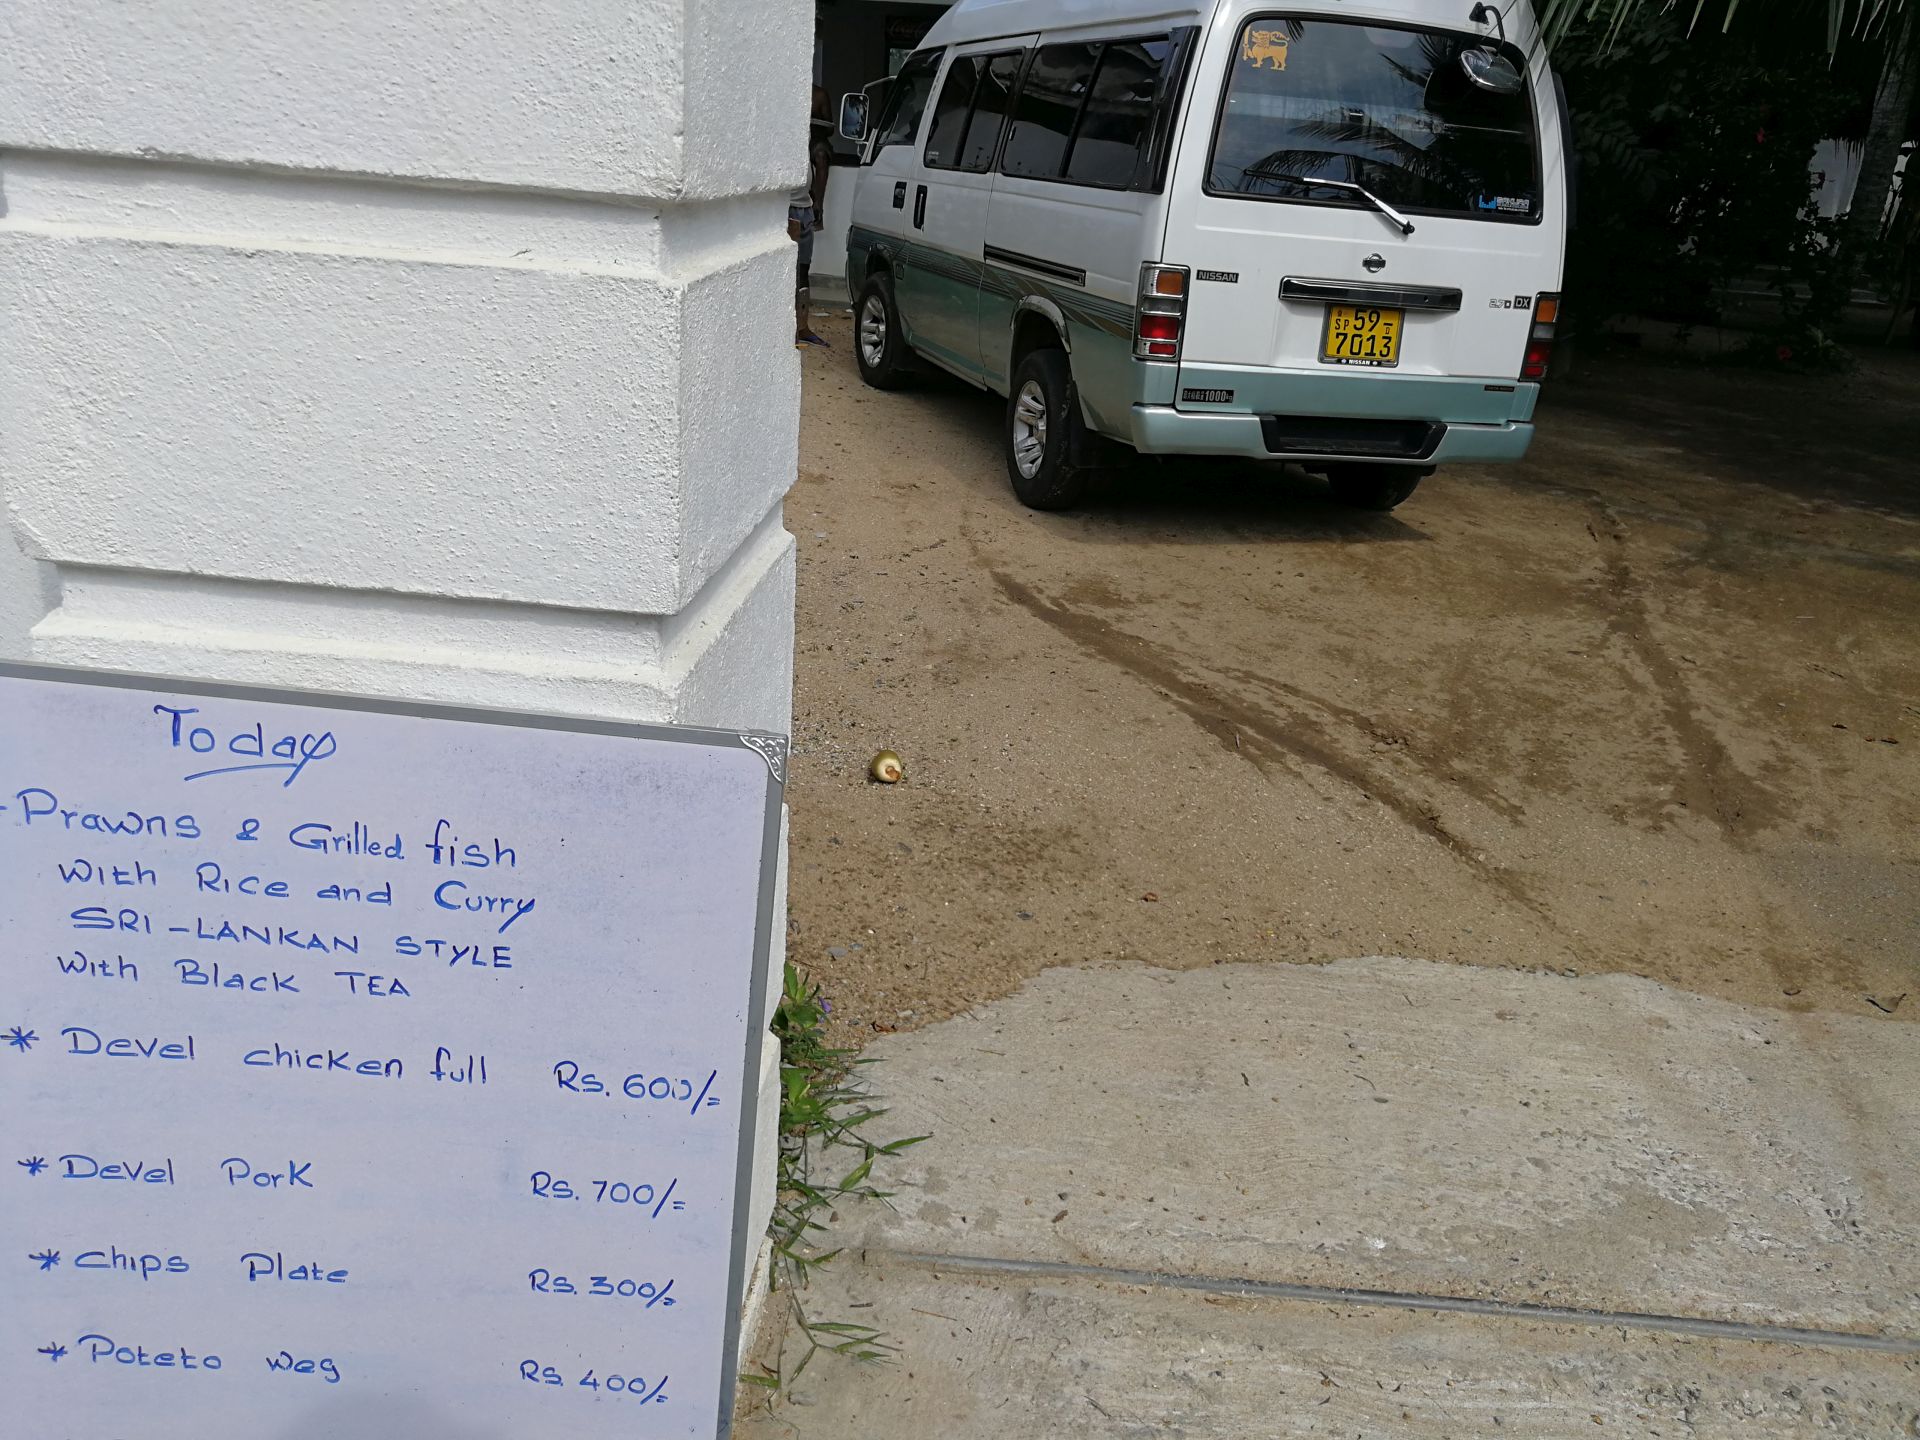 Today
- Prawns & Grilled fish
with Rice and Curry
SRI-LANKAN STYLE
with Black TEA
* Devel chicken full Rs. 600/=
* Devel Pork Rs. 700/=
* Chips Plate Rs. 300/=
* Poteto weg Rs. 400/=
NISSAN
2.7D DX
SP 59-
7013
NISSAN
1000kg